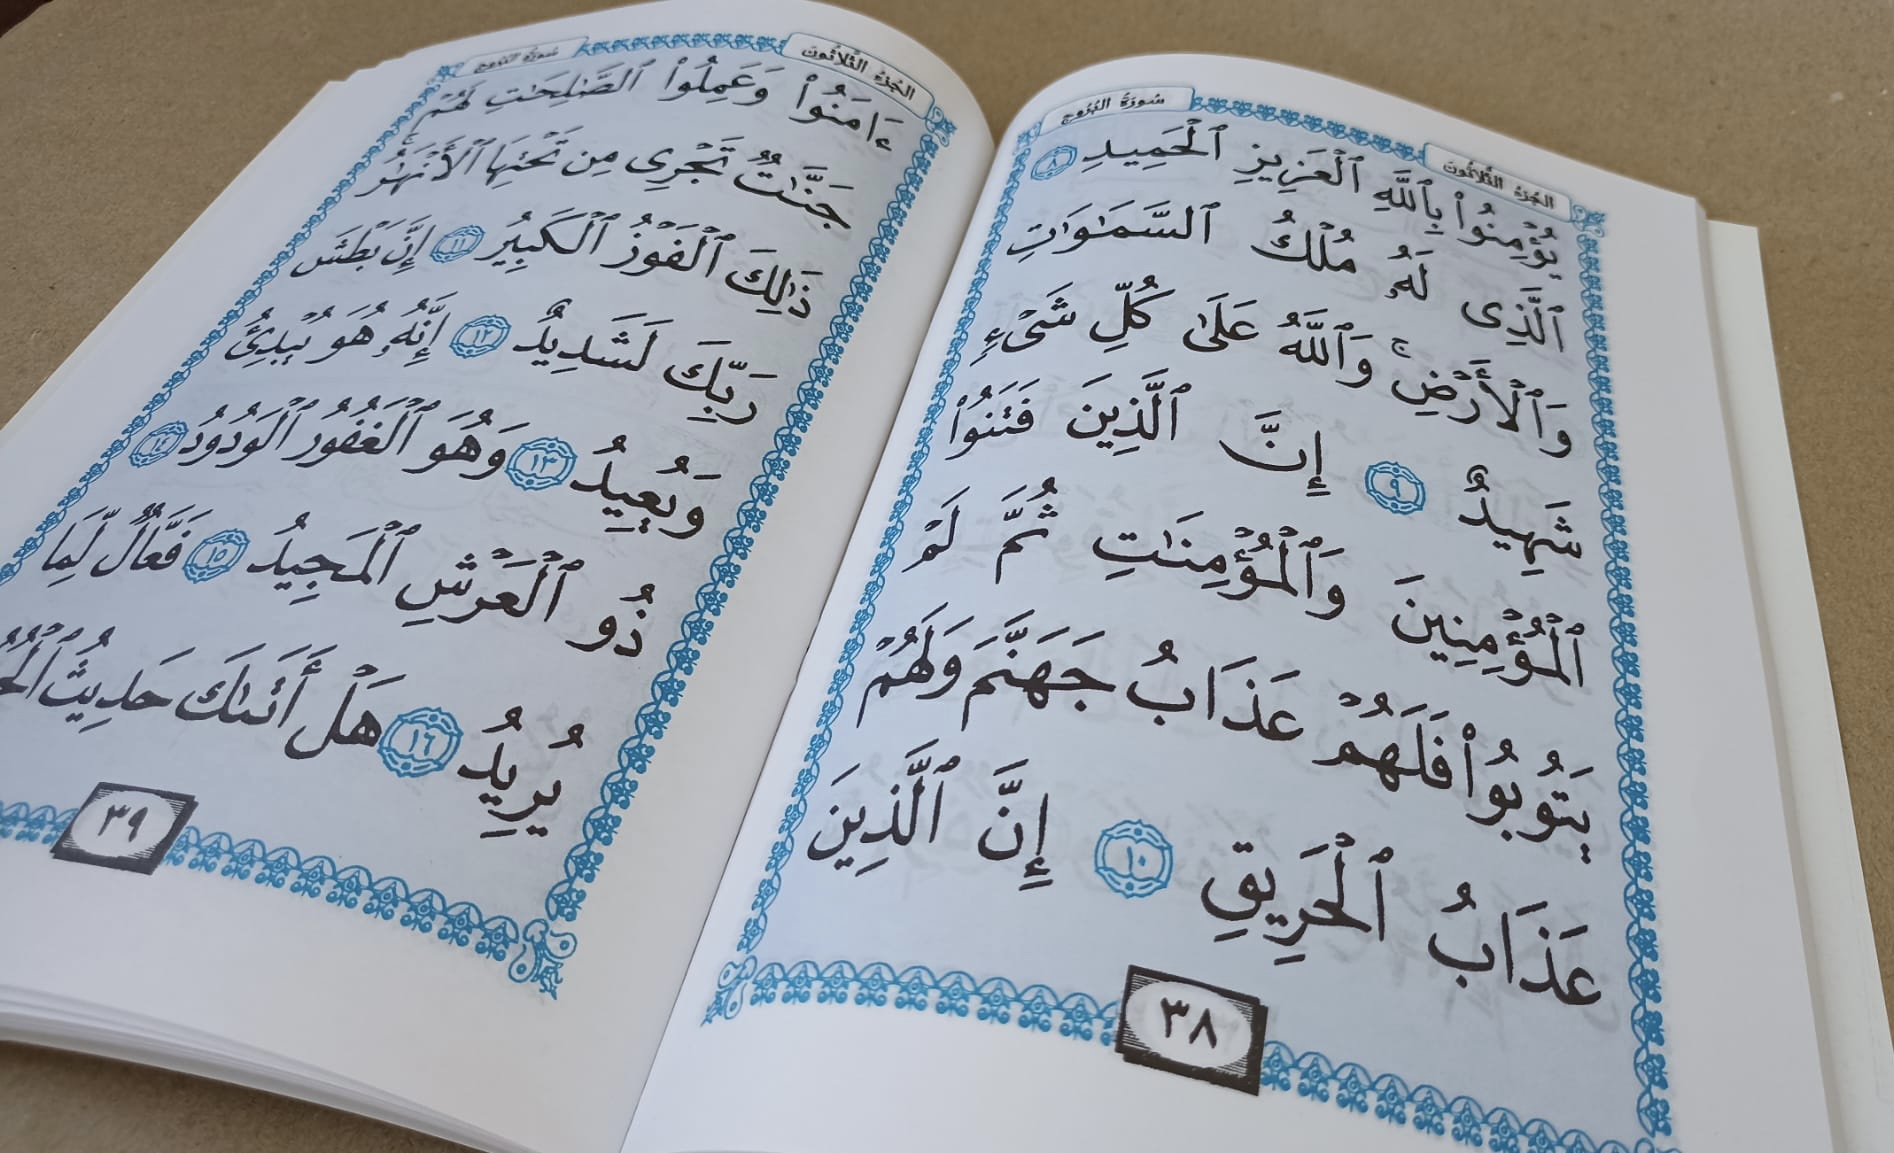 الجزء الثلاثون
سورة البروج
يُؤْمِنُوا۟ بِٱللَّهِ ٱلْعَزِيزِ ٱلْحَمِيدِ ٨
ٱلَّذِى لَهُۥ مُلْكُ ٱلسَّمَٰوَٰتِ
وَٱلْأَرْضِ ۚ وَٱللَّهُ عَلَىٰ كُلِّ شَىْءٍ
شَهِيدٌ ٩ إِنَّ ٱلَّذِينَ فَتَنُوا۟
ٱلْمُؤْمِنِينَ وَٱلْمُؤْمِنَٰتِ ثُمَّ لَمْ
يَتُوبُوا۟ فَلَهُمْ عَذَابُ جَهَنَّمَ وَلَهُمْ
عَذَابُ ٱلْحَرِيقِ ١٠ إِنَّ ٱلَّذِينَ
٣٨
الجزء الثلاثون
سورة البروج
ءَامَنُوا۟ وَعَمِلُوا۟ ٱلصَّٰلِحَٰتِ لَهُمْ
جَنَّٰتٌ تَجْرِى مِن تَحْتِهَا ٱلْأَنْهَٰرُ ۚ
ذَٰلِكَ ٱلْفَوْزُ ٱلْكَبِيرُ ١١ إِنَّ بَطْشَ
رَبِّكَ لَشَدِيدٌ ١٢ إِنَّهُۥ هُوَ يُبْدِئُ
وَيُعِيدُ ١٣ وَهُوَ ٱلْغَفُورُ ٱلْوَدُودُ ١٤
ذُو ٱلْعَرْشِ ٱلْمَجِيدُ ١٥ فَعَّالٌ لِّمَا
يُرِيدُ ١٦ هَلْ أَتَىٰكَ حَدِيثُ
٣٩